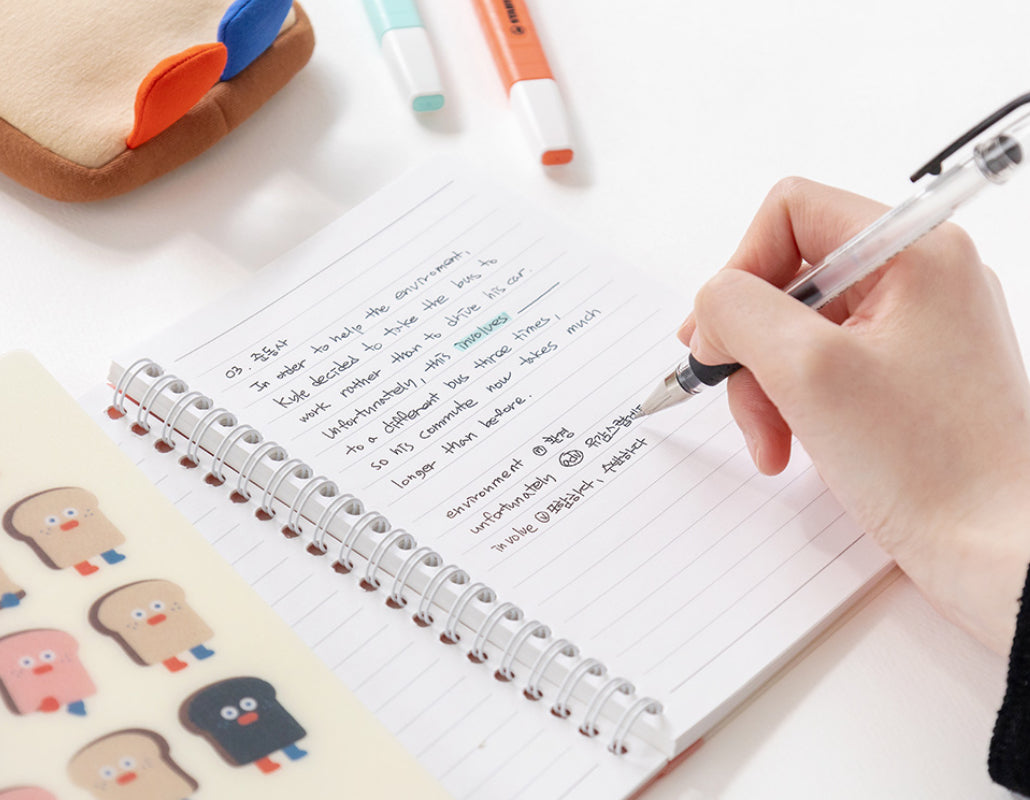 03. 준동사
In order to help the enviroment,
Kyle decided to take the bus to
work rather than to drive his car.
Unfortunately, this involves
to a different bus three times,
so his commute now takes much
longer than before.
environment ⓝ 환경
unfortunately adv 유감스럽게도
involve ⓥ 포함하다, 수반하다
STABILO